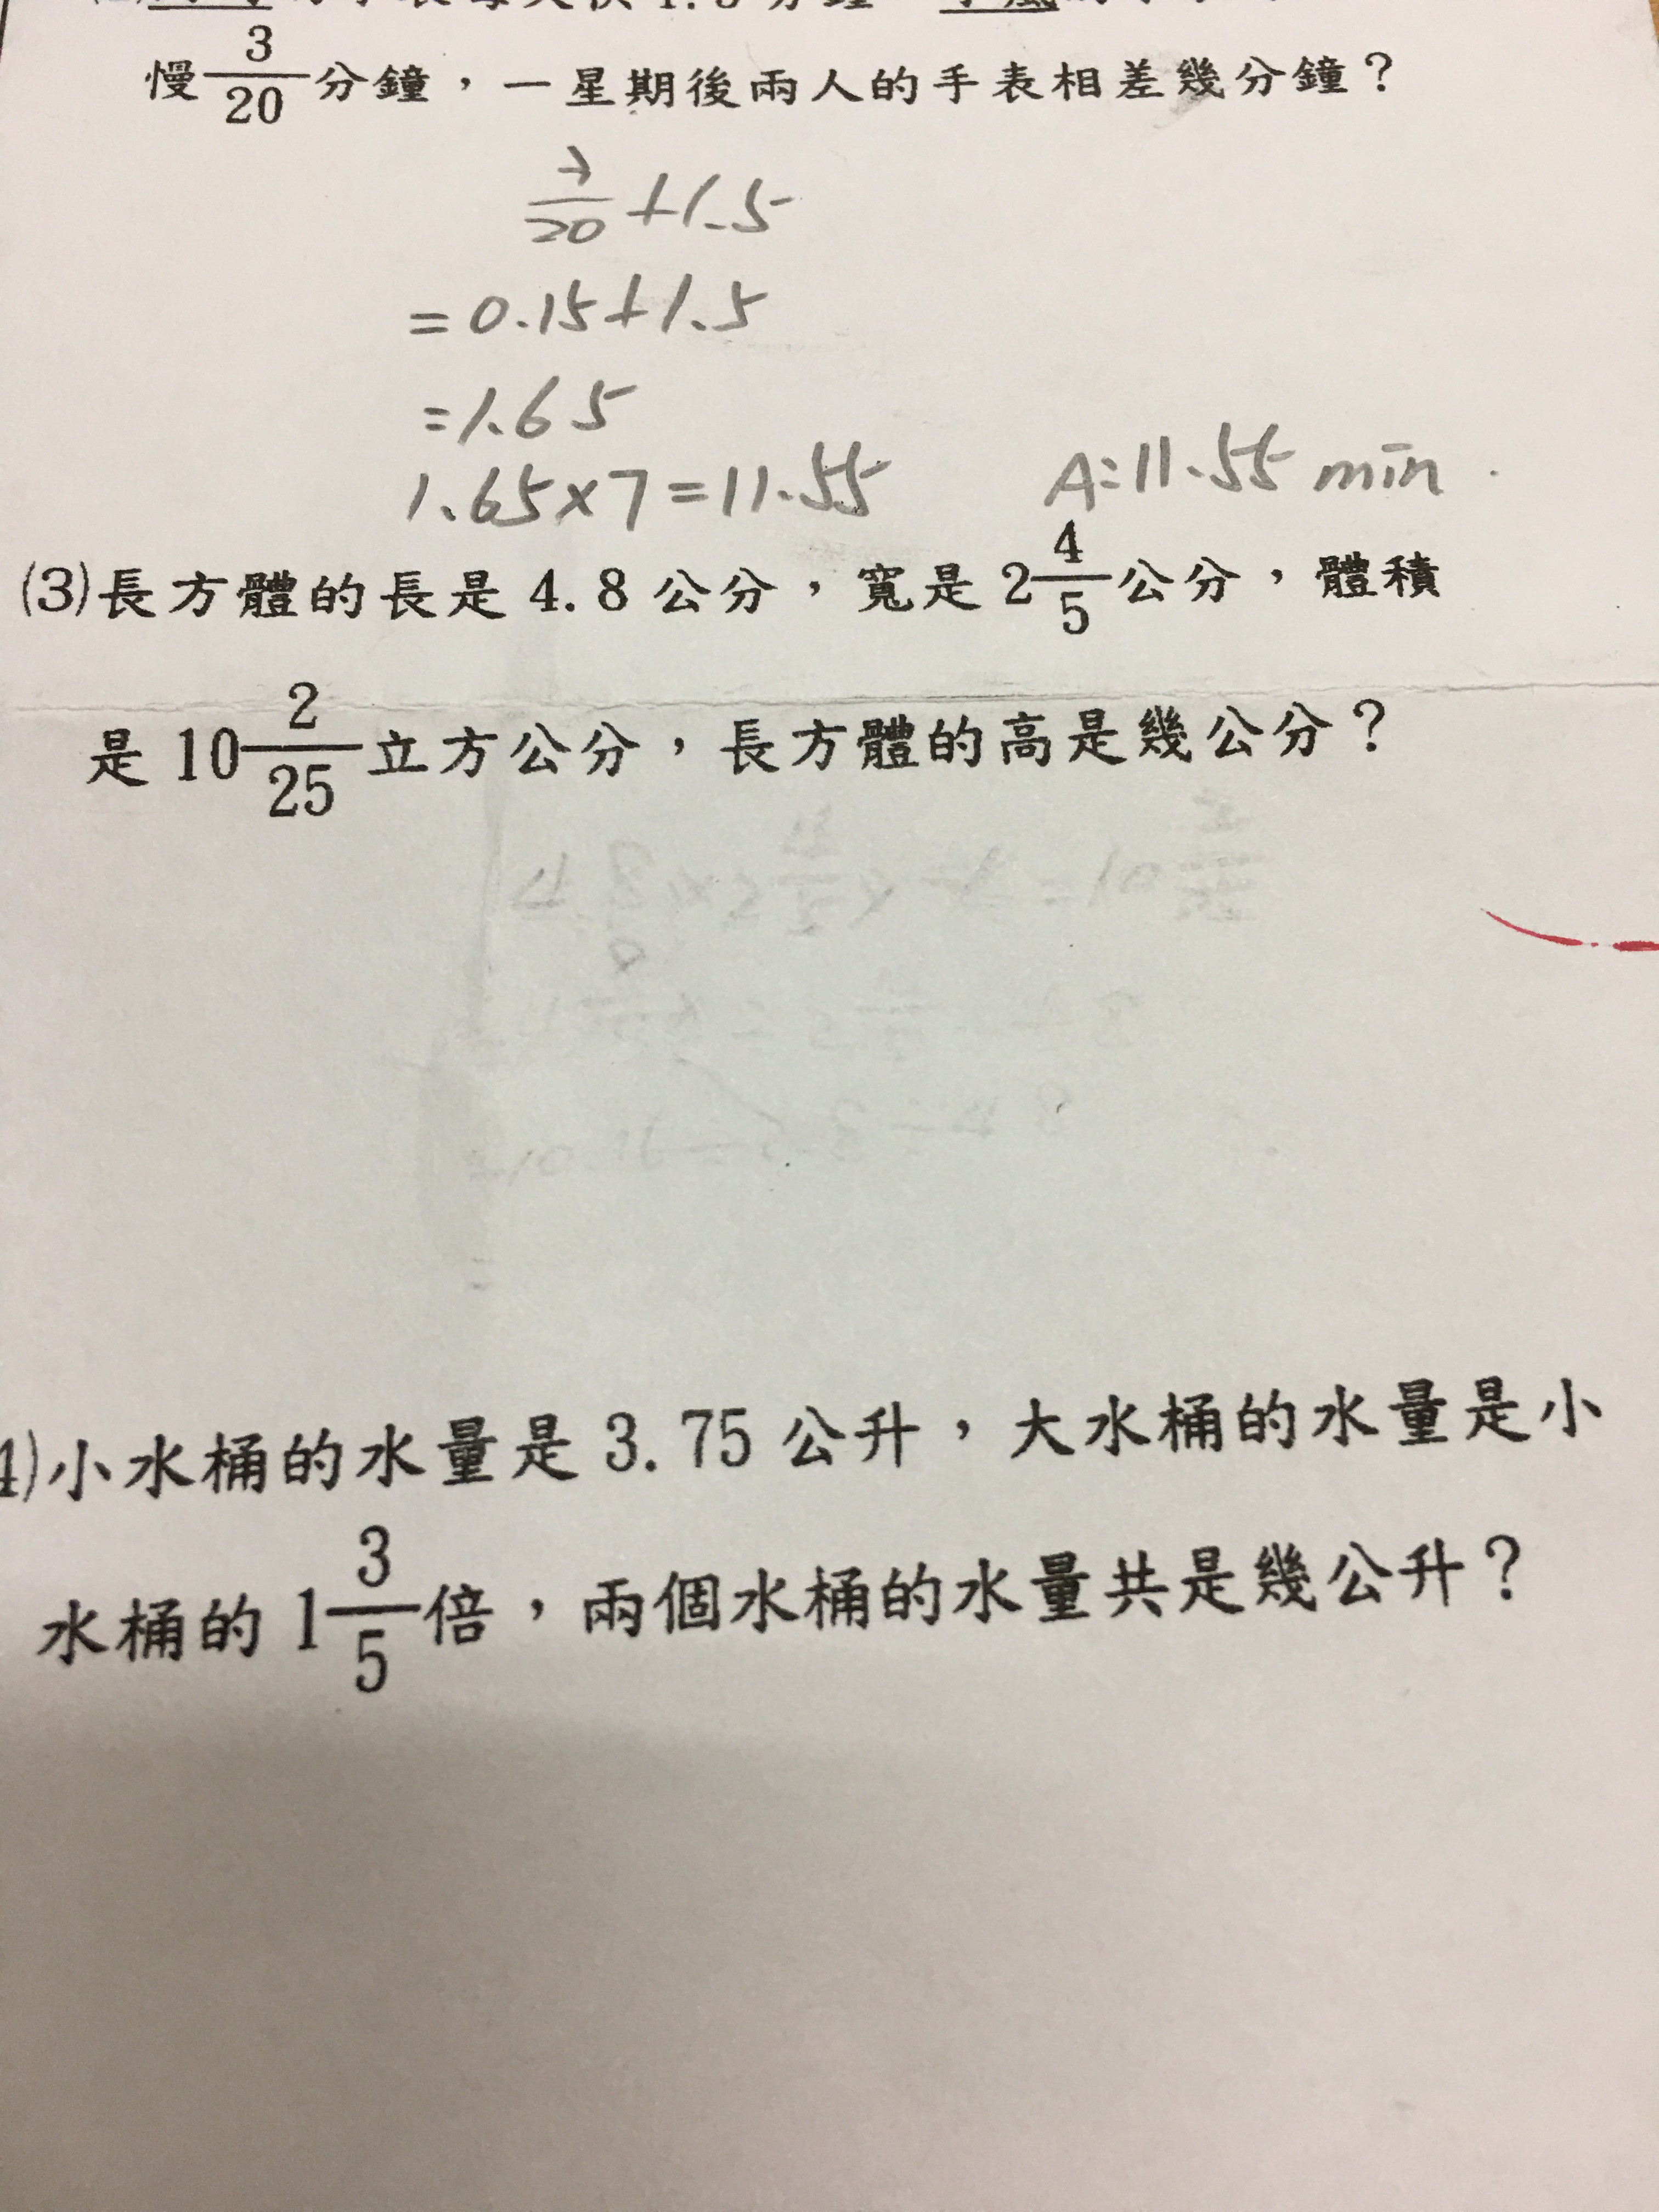 慢3/20分鐘，一星期後兩人的手表相差幾分鐘？
3/20+1.5
=0.15+1.5
=1.65
1.65×7=11.55 A:11.55 min.
(3)長方體的長是 4.8 公分，寬是 2 4/5公分，體積
是 10 2/25立方公分，長方體的高是幾公分？
4)小水桶的水量是 3.75 公升，大水桶的水量是小
水桶的 1 3/5倍，兩個水桶的水量共是幾公升？